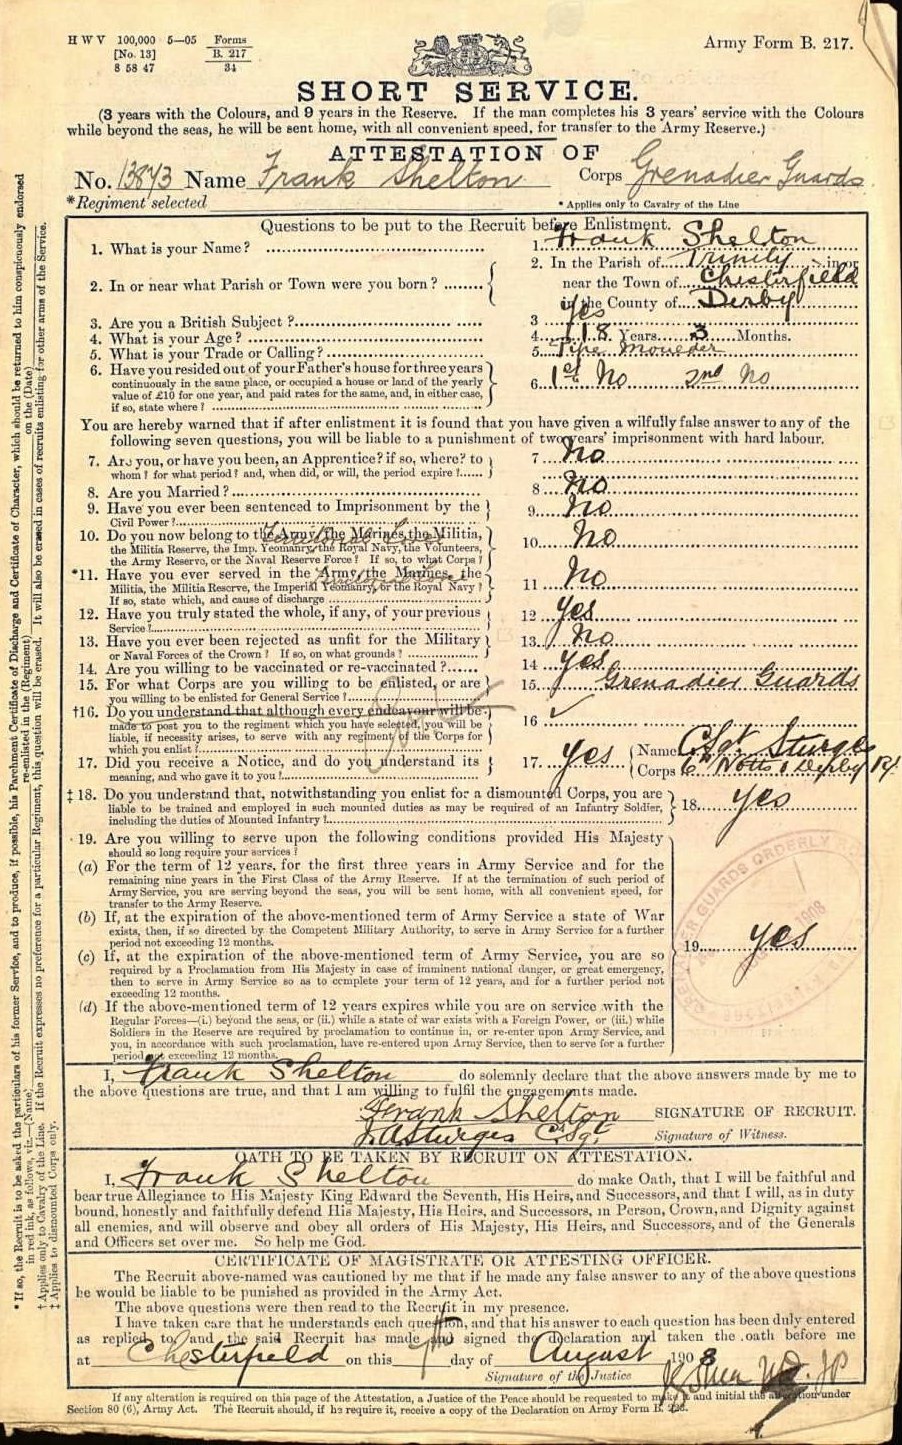 H W V 100,000 5—05 Forms
[No. 13] B. 217
8 58 47 34
Army Form B. 217.
SHORT SERVICE.
(3 years with the Colours, and 9 years in the Reserve. If the man completes his 3 years' service with the Colours
while beyond the seas, he will be sent home, with all convenient speed, for transfer to the Army Reserve.)
ATTESTATION OF
No. 13873 Name Frank Shelton Corps Grenadier Guards
*Regiment selected * Applies only to Cavalry of the Line
Questions to be put to the Recruit before Enlistment.
1. What is your Name? 1. Frank Shelton
2. In or near what Parish or Town were you born? 2. In the Parish of Trinity in or
near the Town of Chesterfield
in the County of Derby
3. Are you a British Subject? 3 Yes
4. What is your Age? 4 18 Years 3 Months.
5. What is your Trade or Calling? 5. Pipe Moulder
6. Have you resided out of your Father's house for three years
continuously in the same place, or occupied a house or land of the yearly
value of £10 for one year, and paid rates for the same, and, in either case,
if so, state where? 6 1st No 2nd No
You are hereby warned that if after enlistment it is found that you have given a wilfully false answer to any of the
following seven questions, you will be liable to a punishment of two years' imprisonment with hard labour.
7. Are you, or have you been, an Apprentice? if so, where? to
whom? for what period? and, when did, or will, the period expire? 7 No
8. Are you Married? 8 No
9. Have you ever been sentenced to Imprisonment by the
Civil Power? 9. No
10. Do you now belong to the Army, the Marines, the Militia,
Territorial Force
the Militia Reserve, the Imp. Yeomanry, the Royal Navy, the Volunteers,
the Army Reserve, or the Naval Reserve Force? If so, to what Corps? 10. No
*11. Have you ever served in the Army, the Marines, the
Militia, the Militia Reserve, the Imperial Yeomanry, or the Royal Navy?
If so, state which, and cause of discharge 11 No
12. Have you truly stated the whole, if any, of your previous
Service? 12 Yes
13. Have you ever been rejected as unfit for the Military
or Naval Forces of the Crown? If so, on what grounds? 13. No
14. Are you willing to be vaccinated or re-vaccinated? 14 Yes
15. For what Corps are you willing to be enlisted, or are
you willing to be enlisted for General Service? 15. Grenadier Guards
†16. Do you understand that although every endeavour will be
made to post you to the regiment which you have selected, you will be
liable, if necessity arises, to serve with any regiment of the Corps for
which you enlist? 16 ✓
17. Did you receive a Notice, and do you understand its
meaning, and who gave it to you? 17. Yes Name C Sgt Sturges
Corps 6th Notts & Derby R
‡ 18. Do you understand, notwithstanding you enlist for a dismounted Corps, you are
liable to be trained and employed in such mounted duties as may be required of an Infantry Soldier,
including the duties of Mounted Infantry? 18. Yes
19. Are you willing to serve upon the following conditions provided His Majesty
should so long require your services?
(a) For the term of 12 years, for the first three years in Army Service and for the
remaining nine years in the First Class of the Army Reserve. If at the termination of such period of
Army Service, you are serving beyond the seas, you will be sent home, with all convenient speed, for
transfer to the Army Reserve.
(b) If, at the expiration of the above-mentioned term of Army Service a state of War
exists, then, if so directed by the Competent Military Authority, to serve in Army Service for a further
period not exceeding 12 months.
(c) If, at the expiration of the above-mentioned term of Army Service, you are so
required by a Proclamation from His Majesty in case of imminent national danger, or great emergency,
then to serve in Army Service so as to complete your term of 12 years, and for a further period not
exceeding 12 months.
(d) If the above-mentioned term of 12 years expires while you are on service with the
Regular Forces—(i.) beyond the seas, or (ii.) while a state of war exists with a Foreign Power, or (iii.) while
Soldiers in the Reserve are required by proclamation to continue in, or re-enter upon Army Service, and
you, in accordance with such proclamation, have re-entered upon Army Service, then to serve for a further
period not exceeding 12 months.
19. Yes
GUARDS ORDERLY
1908
I, Frank Shelton do solemnly declare that the above answers made by me to
the above questions are true, and that I am willing to fulfil the engagements made.
Frank Shelton SIGNATURE OF RECRUIT.
J. A. Sturges C. Sgt Signature of Witness.
OATH TO BE TAKEN BY RECRUIT ON ATTESTATION.
I, Frank Shelton do make Oath, that I will be faithful and
bear true Allegiance to His Majesty King Edward the Seventh, His Heirs, and Successors, and that I will, as in duty
bound, honestly and faithfully defend His Majesty, His Heirs, and Successors, in Person, Crown, and Dignity against
all enemies, and will observe and obey all orders of His Majesty, His Heirs, and Successors, and of the Generals
and Officers set over me. So help me God.
CERTIFICATE OF MAGISTRATE OR ATTESTING OFFICER.
The Recruit above-named was cautioned by me that if he made any false answer to any of the above questions
he would be liable to be punished as provided in the Army Act.
The above questions were then read to the Recruit in my presence.
I have taken care that he understands each question, and that his answer to each question has been duly entered
as replied to, and the said Recruit has made and signed the declaration and taken the oath before me
at Chesterfield on this day of August 1908
Signature of the Justice JP
If any alteration is required on this page of the Attestation, a Justice of the Peace should be requested to make it and initial the alteration under
Section 80 (6), Army Act. The Recruit should, if he require it, receive a copy of the Declaration on Army Form B.
* If so, the Recruit is to be asked the particulars of his former Service, and to produce, if possible, his Parchment Certificate of Discharge and Certificate of Character, which should be returned to him conspicuously endorsed
in red ink, as follows, viz.—(Name) re-enlisted in the (Regiment) on the (Date)
† Applies only to Cavalry of the Line. If the Recruit expresses no preference for a particular Regiment, this question will be erased. It will also be erased in cases of recruits enlisting for other arms of the Service.
‡ Applies to dismounted Corps only.